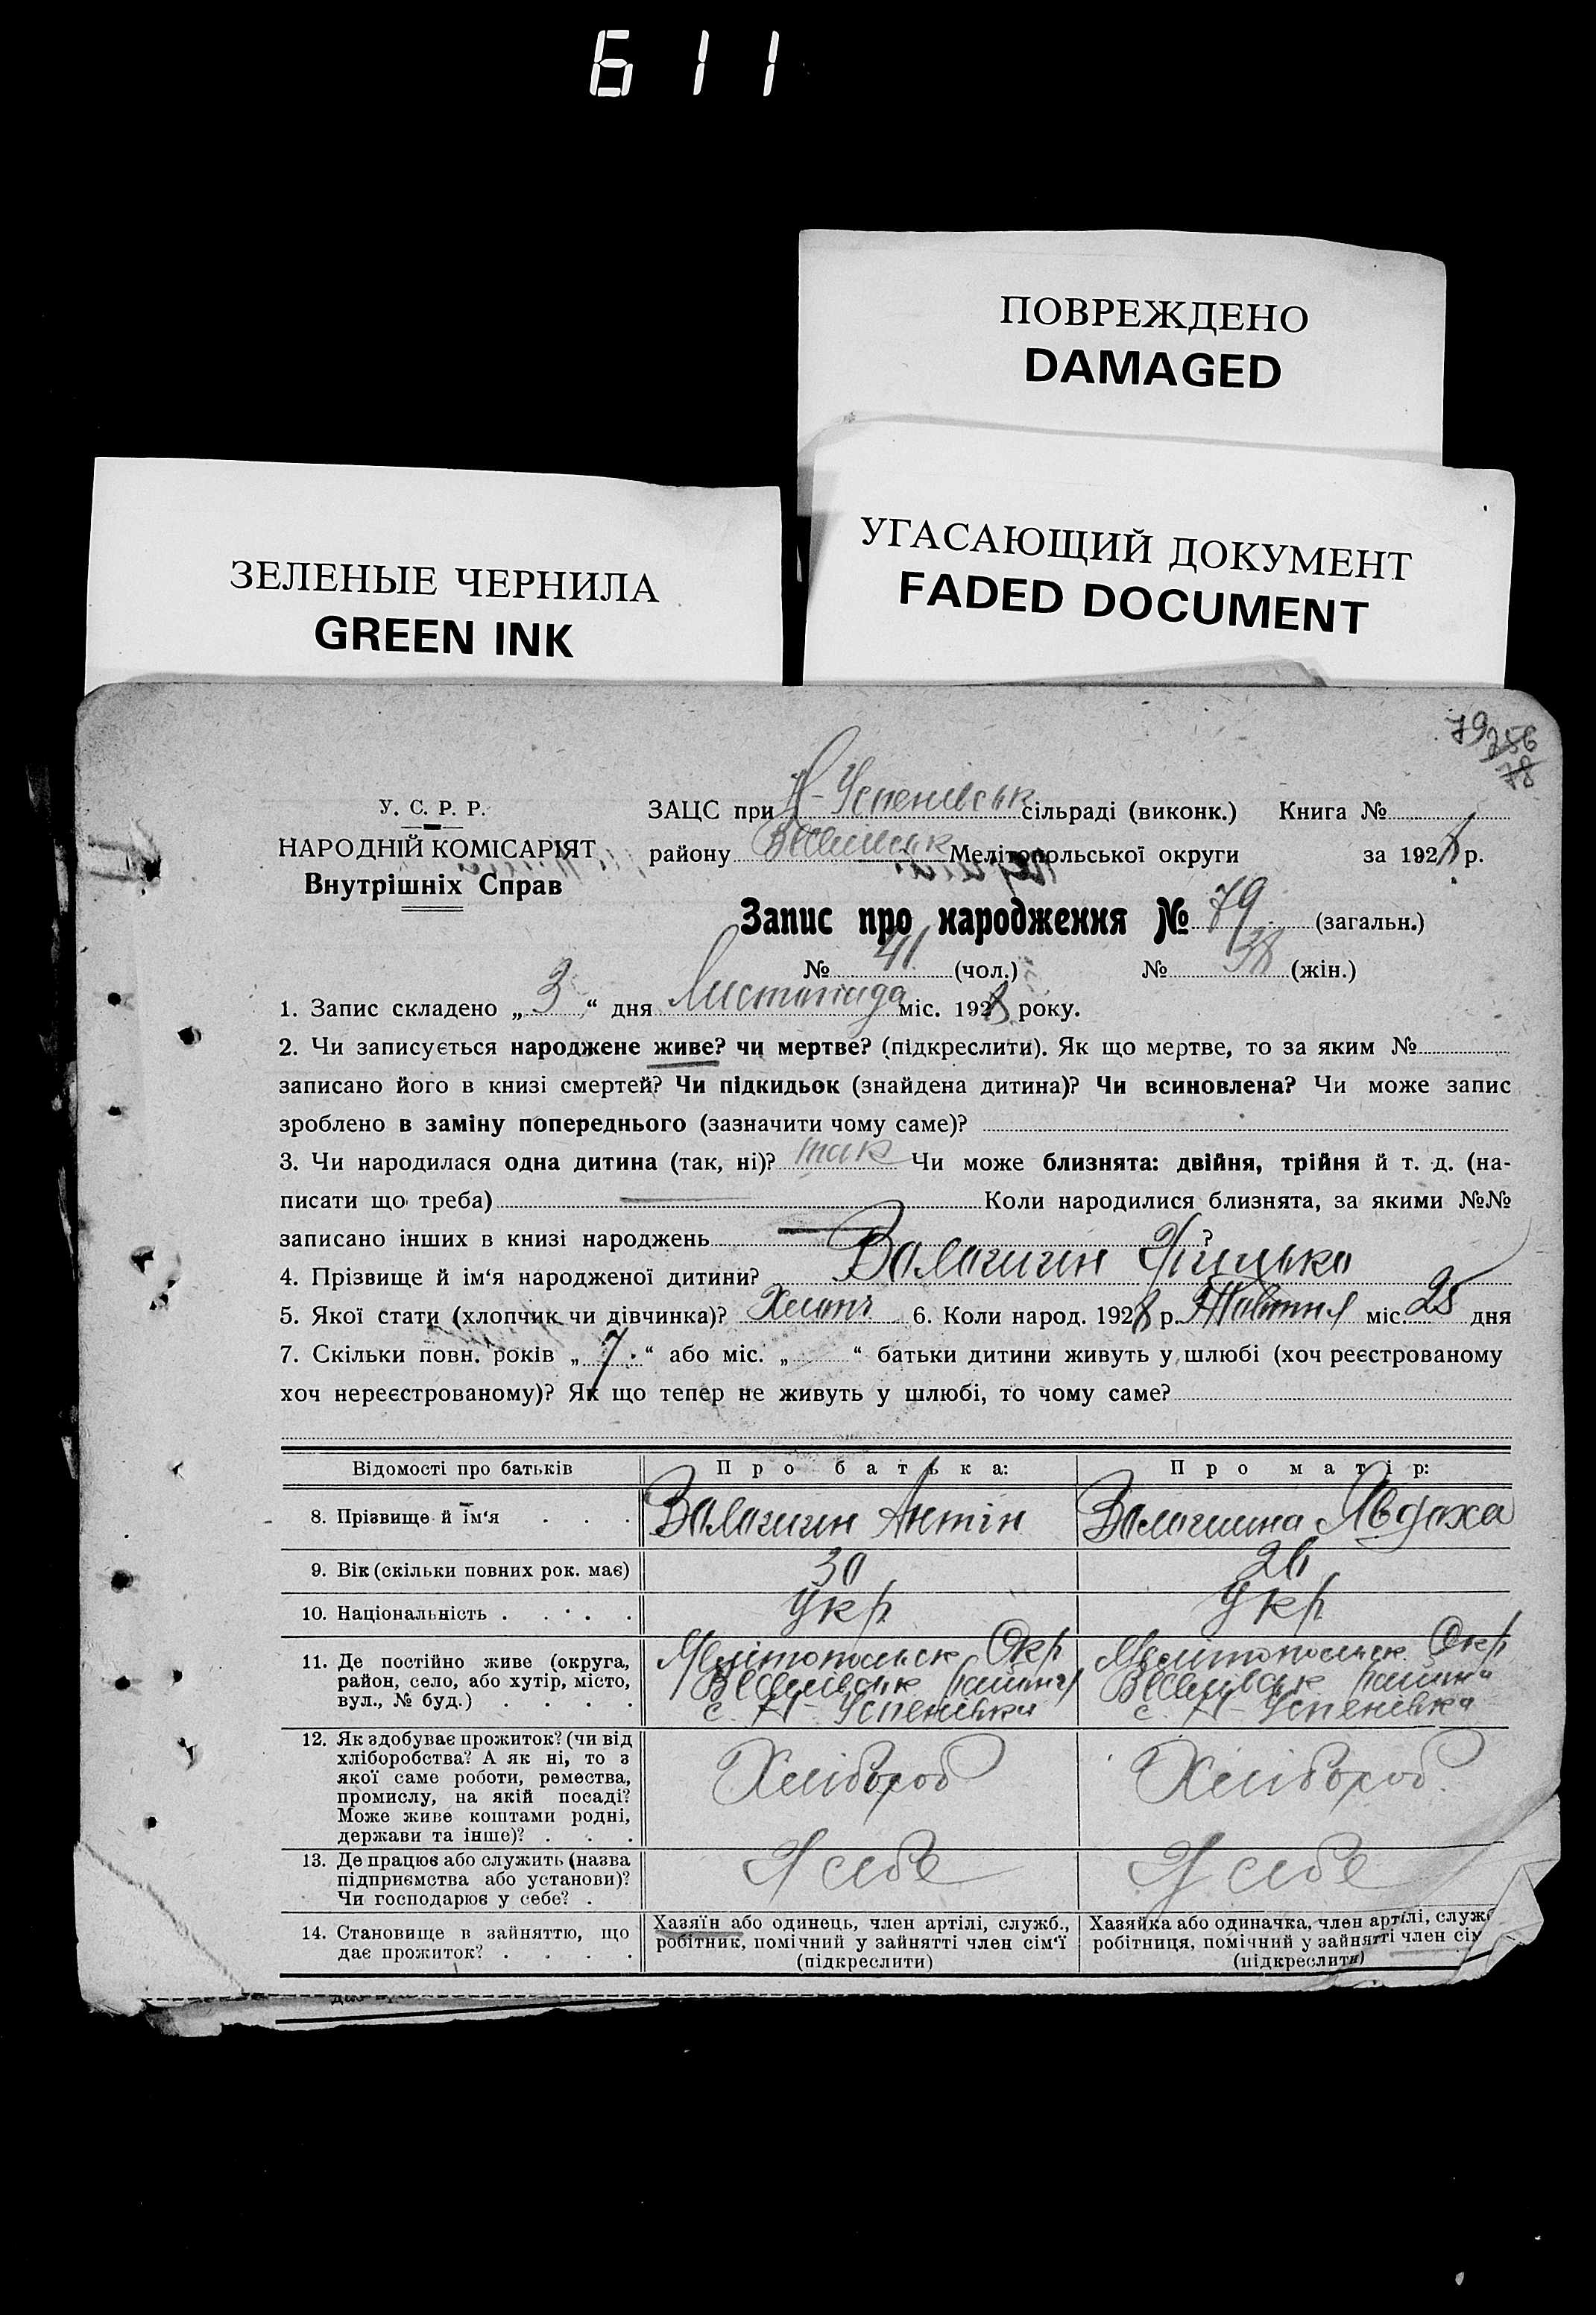 611
ПОВРЕЖДЕНО
DAMAGED
УГАСАЮЩИЙ ДОКУМЕНТ
FADED DOCUMENT
ЗЕЛЕНЫЕ ЧЕРНИЛА
GREEN INK
79
256
78
У. С. Р. Р.
НАРОДНІЙ КОМІСАРІЯТ
Внутрішніх Справ
ЗАЦС при Н-Успенівськ сільраді (виконк.) Книга №
району Веселівськ Мелітопольської округи за 1928 р.
Запис про народження № 79 (загальн.)
№ 41 (чол.) № 38 (жін.)
1. Запис складено „ 3 “ дня Листопада міс. 1928 року.
2. Чи записується народжене живе? чи мертве? (підкреслити). Як що мертве, то за яким №
записано його в книзі смертей? Чи підкидьок (знайдена дитина)? Чи всиновлена? Чи може запис
зроблено в заміну попереднього (зазначити чому саме)?
3. Чи народилася одна дитина (так, ні)? так Чи може близнята: двійня, трійня й т. д. (на-
писати що треба) Коли народилися близнята, за якими №№
записано інших в книзі народжень ?
4. Прізвище й ім‘я народженої дитини? Волошин Грицько
5. Якої стати (хлопчик чи дівчинка)? Хлопч 6. Коли народ. 1928 р. Жовтня міс. 25 дня
7. Скільки повн. років „ 7 “ або міс. „ “ батьки дитини живуть у шлюбі (хоч реєстрованому
хоч нереєстрованому)? Як що тепер не живуть у шлюбі, то чому саме?
Відомості про батьків Про батька: Про матір:
8. Прізвище й ім‘я Волошин Антін Волошина Явдоха
9. Вік (скільки повних рок. має) 30 26
10. Національність Укр Укр
11. Де постійно живе (округа, район, село, або хутір, місто, вул., № буд.)
Мелітопольск Окр Мелітопольск Окр
Веселівськ району Веселівськ району
с. Н-Успенівка с. Н-Успенівка
12. Як здобуває прожиток? (чи від
хліборобства? А як ні, то з
якої саме роботи, ремества,
промислу, на якій посаді?
Може живе коштами родні,
держави та інше)?
Хлібороб Хлібороб
13. Де працює або служить (назва
підприємства або установи)?
Чи господарює у себе?
У себе У себе
14. Становище в зайняттю, що
дає прожиток?
Хазяїн або одинець, член артілі, служб.,
робітник, помічний у зайнятті член сім‘ї
(підкреслити)
Хазяйка або одиначка, член артілі, служб
робітниця, помічний у зайнятті член сім
(підкреслити)